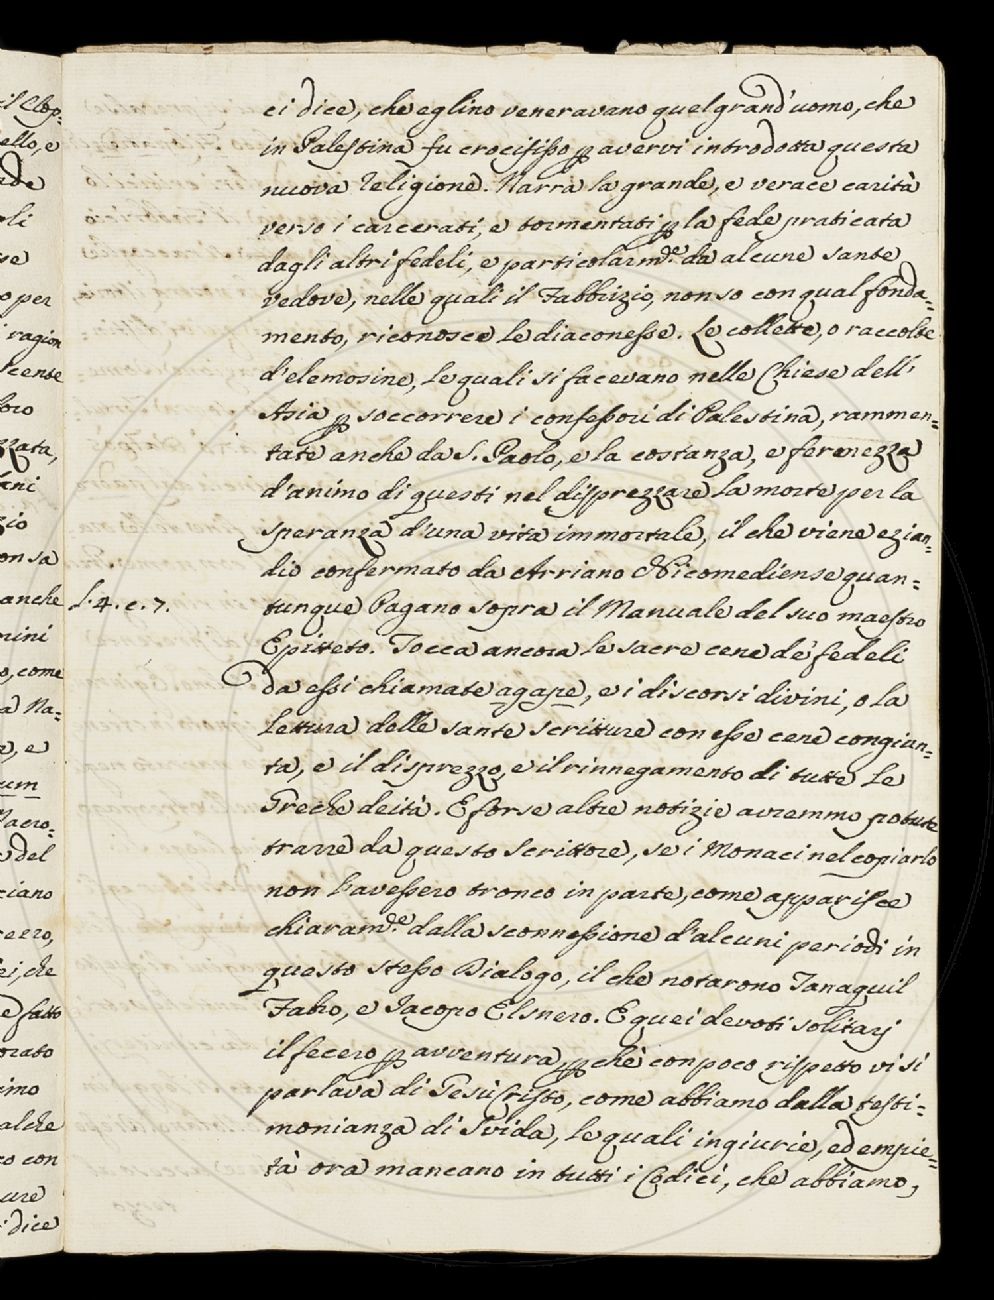 ci dice, che eglino veneravano quel grand'uomo, che
in Palestina fu crocifisso p avervi introdotta questa
nuova religione. Narra la grande, e verace carità
verso i carcerati, e tormentati p la fede praticata
dagli altri fedeli, e particolarmde. da alcune sante
vedove, nelle quali il Fabbrizio, non so con qual fonda=
mento, riconosce le diaconesse. Le collette, o raccolte
d'elemosine, le quali si facevano nelle Chiese dell'
Asia p soccorrere i confessori di Palestina, rammen=
tate anche da S. Paolo, e la costanza, e fermezza
d'animo di questi nel disprezzare la morte per la
speranza d'una vita immortale, il che viene ezian=
dio confermato da Arriano Nicomediense quan=
L. 4. c. 7. tunque Pagano sopra il Manuale del suo maestro
Epitteto. Tocca ancora le sacre cene de' fedeli
da essi chiamate agape, e i discorsi divini, o la
lettura delle sante scritture con esse cene congiun=
ta, e il disprezzo, e il rinnegamento di tutte le
Greche deità. E forse altre notizie avremmo potute
trarre da questo scrittore, se i Monaci nel copiarlo
non l'avessero tronco in parte, come apparisce
chiaramde. dalla sconnessione d'alcuni periodi in
questo stesso Dialogo, il che notarono Tanaquil
Fabro, e Jacopo Elsnero. E quei devoti solitarj
il fecero p avventura, p chè con poco rispetto vi si
parlava di Gesù Cristo, come abbiamo dalla testi=
monianza di Svida, le quali ingiurie, ed empie=
tà ora mancano in tutti i Codici, che abbiamo,
il Clop=
ello, e
ade
oli
se
o per
i ragion
scente
loro
zzata,
lani
zio
on sa
anche
mini
o, come
a Na=
e, e
um
Macro=
e del
ciano
rezzo,
ei, che
e fatto
orato
imo
alche
co con
ure
dice